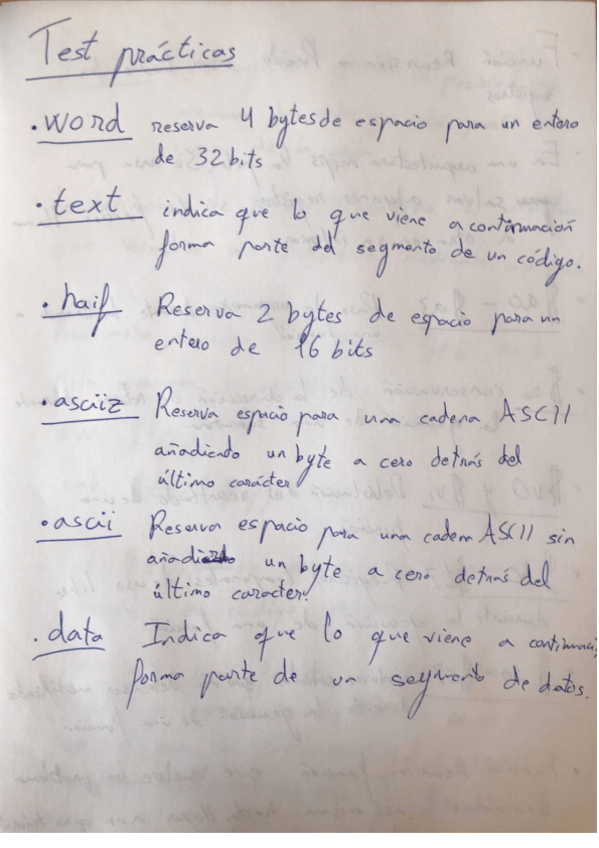 Test prácticas
.word reserva 4 bytes de espacio para un entero
de 32 bits
.text indica que lo que viene a continuación
forma parte del segmento de un código.
.half Reserva 2 bytes de espacio para un
entero de 16 bits
.asciiz Reserva espacio para una cadena ASCII
añadiendo un byte a cero detrás del
último carácter
.ascii Reserva espacio para una cadena ASCII sin
añadir un byte a cero detrás del
último caracter.
.data Indica que lo que viene a continuaci
forma parte de un segmento de datos.